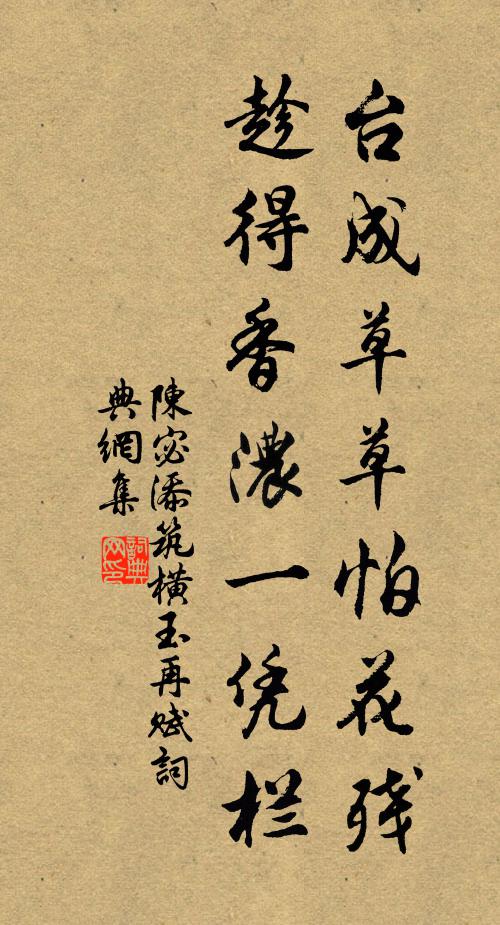 台成草草怕花残
趁得香濃一凭栏
陳宓添筑横玉再赋詞
典網集
詞典
网印